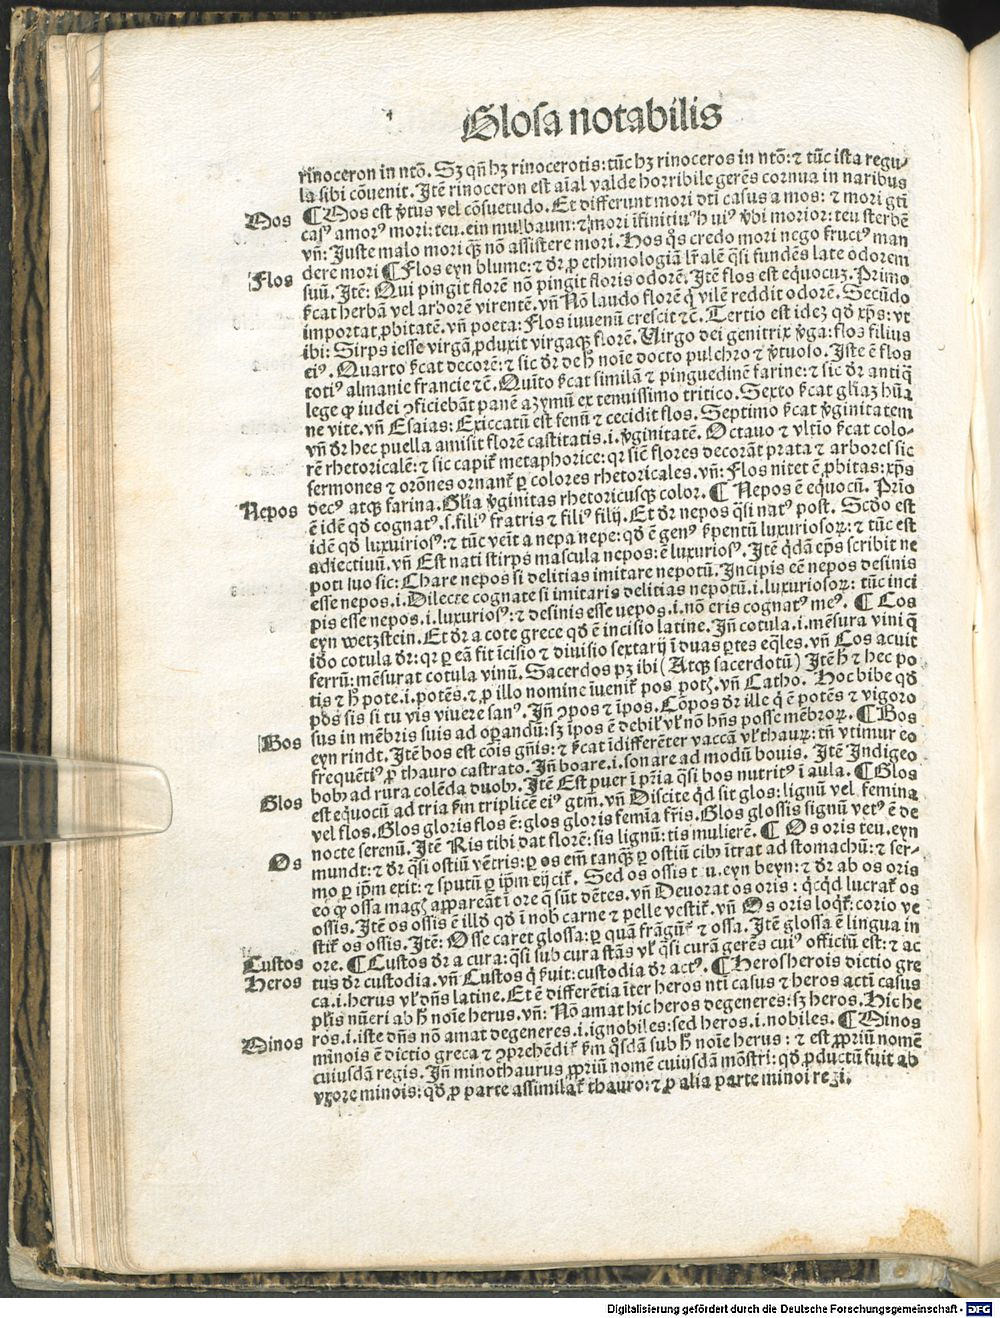 Glosa notabilis
rinoceron in ntō. Sꝫ qn̄ hꝫ rinocerotis: tūc hꝫ rinoceros in ntō: ⁊ tūc ista regu⸗
la sibi cōuenit. Itē rinoceron est aīal valde horribile gerēs cornua in naribus
Mos
¶ Mos est v̓tus vel cōsuetudo. Et differunt mori dti casus a mos: ⁊ mori gti
casꝰ amorꝰ mori: teu. ein mulbaum: ⁊ mori īfinitiuꝰ hꝰ uiꝰ v̓bi morior: teu sterbē
vn̄: Juste malo mori qꝫ nō assistere mori. Hos q̄s credo mori nego fruciꝰ man
Flos
dere mori ¶ Flos eyn blume: ⁊ dr̄ ꝓ ethimologiā lr̄alē q̄si fundēs late odorem
suū. Itē: Qui pingit florē nō pingit floris odorē. Itē flos est equocuꝫ. Primo
s̓cat herbā vel arborē virentē. vn̄ Nō laudo florē q̓ vilē reddit odorē. Secūdo
importat ꝓbitatē. vn̄ poeta: Flos iuuenū crescit ⁊c̄. Tertio est ideꝫ qd̄ xp̄s: vt
ibi: Sirps iesse virgā ꝓduxit virgaqꝫ florē. Uirgo dei genitrix v̓ga: flos filius
eiꝰ. Quarto s̓cat decorē: ⁊ sic dr̄ de hꝰ noīe docto pulchro ⁊ v̓tuolo. Iste ē flos
totiꝰ almanie francie ⁊c̄. Quīto s̓cat similā ⁊ pinguedinē farine: ⁊ sic dr̄ antiq̄
lege ꝙ iudei ꝯficiebāt panē aꝫymū ex tenuissimo tritico. Sexto s̓cat gl̓iaꝫ hūa
ne vite. vn̄ Esaias: Exiccatū est fenū ⁊ cecidit flos. Septimo s̓cat v̓ginitatem
vn̄ dr̄ hec puella amisit florē castitatis .i. v̓ginitatē. Octauo ⁊ vltīo s̓cat colo⸗
rē rhetoricalē: ⁊ sic capit̄ metaphorice: qr sic̄ flores decorāt prata ⁊ arbores sic
sermones ⁊ orōnes ornant̄ ꝑ colores rhetoricales. vn̄: Flos nitet ē ꝓbitas: xp̄s
Nepos
decꝰ atqꝫ farina. Gl̓ia v̓ginitas rhetoricusqꝫ color. ¶ Nepos ē equocū. Prīo
ē idē qd̄ cognatꝰ .s. filiꝰ fratris ⁊ filiꝰ filij. Et dr̄ nepos q̄si natꝰ post. Scd̄o est
idē qd̄ luxuiriosꝰ: ⁊ tūc venit a nepa nepe: qd̄ ē genꝰ s̓pentū luxuriosoꝝ: ⁊ tūc est
adiectiuū. vn̄ Est nati stirps mascula nepos: ē luxuriosꝰ. Itē q̄dā ep̄s scribit ne
poti suo sic: Chare nepos si delitias imitare nepotū. Incipis eē nepos desinis
esse nepos .i. Dilecte cognate si imitaris delitias nepotū .i. luxuriosoꝝ: tūc inci
pis esse nepos .i. luxuriosꝰ: ⁊ desinis esse uepos .i. nō eris cognatꝰ meꝰ. ¶ Cos
eyn wetzstein. Et dr̄ a cote grece qd̄ ē incisio latine. Jn̄ cotula .i. mēsura vini q̄
id̄o cotula dr̄: qr ꝑ eā fit īcisio ⁊ diuisio sextarij ī duas ꝑtes eq̄les. vn̄ Cos acuit
ferrū: mēsurat cotula vinū. Sacerdos pꝫ ibi (Atqꝫ sacerdotū) Itē h̓ ⁊ hec po
tis ⁊ h̓ pote .i. potēs. ⁊ ꝓ illo nomine īuenit̄ pos potꝭ. vn̄ Catho. Hoc bibe qd̄
pos sis si tu vis viuere sanꝰ. Jn̄ ꝯpos ⁊ īpos. Cōpos dr̄ ille q̓ ē potēs ⁊ vigoro
Bos
sus in mēbris suis ad oꝑandū: sꝫ īpos ē debil̓ vl̓ nō hn̄s posse mēbroꝝ. ¶ Bos
eyn rindt. Itē bos est cōis gn̄is: ⁊ s̓cat īdifferēter vaccā vl̓ thauꝝ: tn̄ vtimur eo
frequētiꝰ ꝓ thauro castrato. Jn̄ boare .i. sonare ad modū bouis. Itē Indigeo
bobꝫ ad rura colēda duobꝫ. Itē Est puer ī pr̄ia q̄si bos nutritꝰ ī aula. ¶ Glos
Glos
est equocū ad tria s̓m triplicē eiꝰ gtm̄. vn̄ Discite qd̄ sit glos: lignū vel femina
vel flos. Glos gloris flos ē: glos gloris femīa fr̄is. Glos glossis signū vetꝰ ē de
nocte serenū. Itē Ris tibi dat florē: sis lignū: tis mulierē. ¶ Os oris teu. eyn
Os
mundt: ⁊ dr̄ q̄si ostiū vētris: ꝑ os em̄ tanqꝫ ꝑ ostiū cibꝰ ītrat ad stomachū: ⁊ ser⸗
mo ꝑ ip̄m exit: ⁊ sputū ꝑ ip̄m eijcit̄. Sed os ossis teu. eyn beyn: ⁊ dr̄ ab os oris
eo ꝙ ossa magꝭ appareāt ī ore q̄ sūt dētes. vn̄ Deuorat os oris: qcqd̄ lucrat̄ os
ossis. Itē os ossis ē illd̄ qd̄ ī nobꝭ carne ⁊ pelle vestit̄. vn̄ Os oris loqt̄: corio ve
stit̄ os ossis. Itē: Osse caret glossa: ꝑ quā frāgūt̄ ⁊ ossa. Itē glossa ē lingua in
Custos
ore. ¶ Custos dr̄ a cura: q̄si sub cura stās vl̓ q̄si curā gerēs cuiꝰ officiū est: ⁊ ac
Heros
tus dr̄ custodia. vn̄ Custos q̓ s̓uit: custodia dr̄ actꝰ. ¶ Heros herois dictio gre
ca .i. herus vl̓ dn̄s latine. Et ē differētia īter heros nti casus ⁊ heros acti casus
pl̓is nūeri ab hꝰ noīe herus. vn̄: Nō amat hic heros degeneres: sꝫ heros. Hic he
ros .i. iste dn̄s nō amat degeneres .i. ignobiles: sed heros .i. nobiles. ¶ Minos
Minos
minois ē dictio greca ⁊ ꝯprehēdit̄ s̓m q̄sdā sub hꝰ noīe herus: ⁊ est ꝓpriū nomē
cuiusdā regis. Jn̄ minothaurus ꝓpriū nomē cuiusdā mōstri: qd̄ ꝓductū fuit ab
vxore minois: qd̄ ꝓ parte assimilat̄ thauro: ⁊ ꝓ alia parte minoi regi.
Digitalisierung gefördert durch die Deutsche Forschungsgemeinschaft - DFG